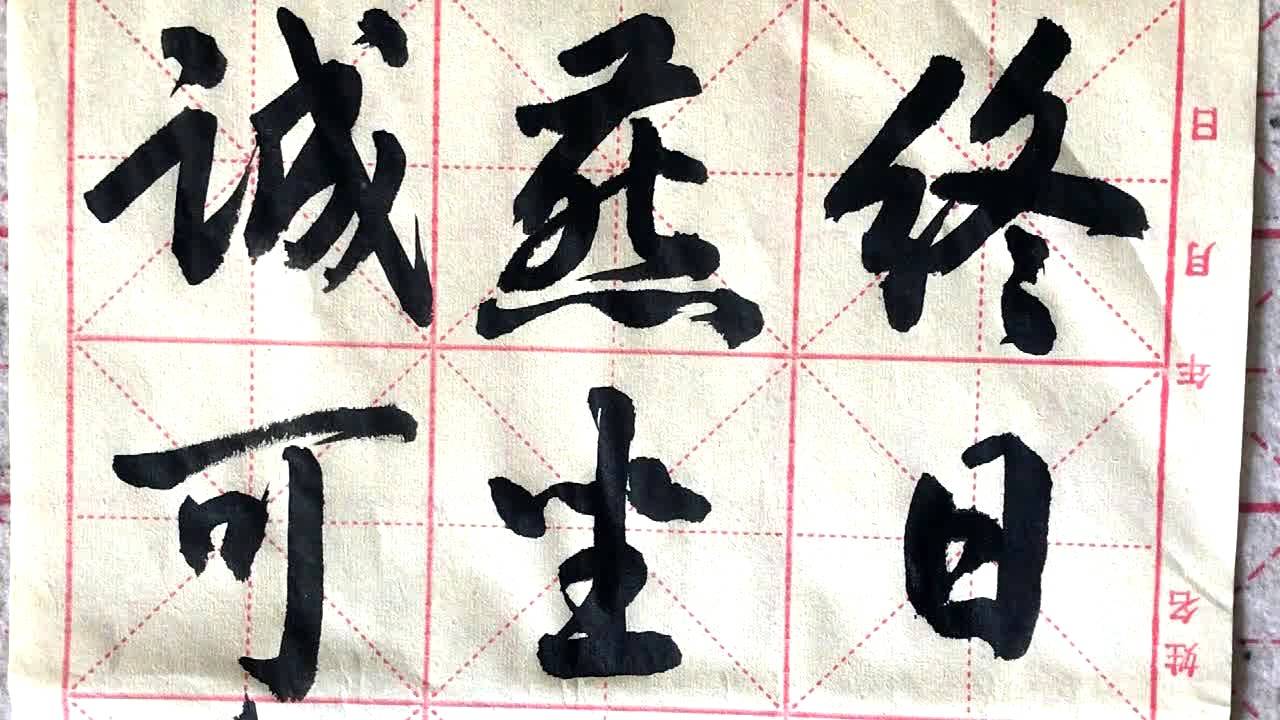 终日
燕坐
诚可
姓名 年 月 日